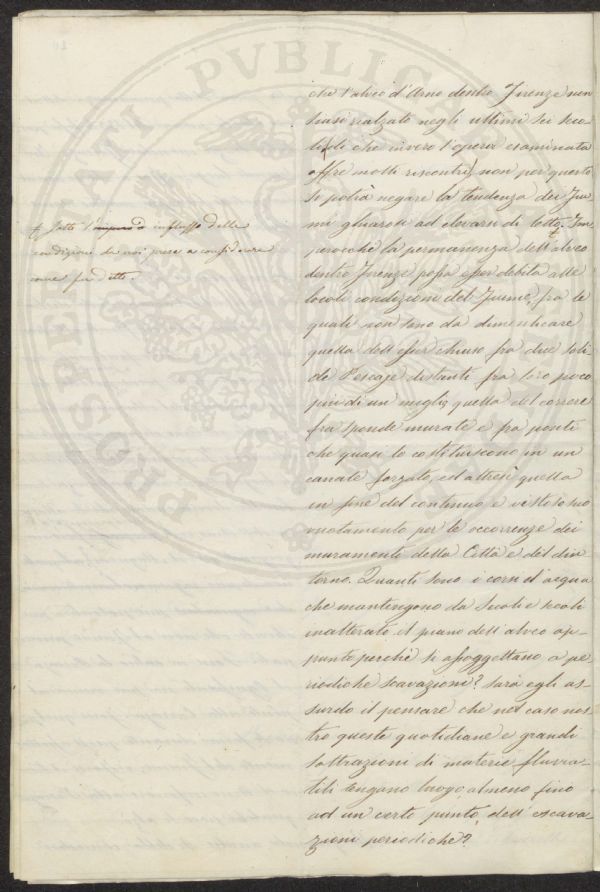 che l'alveo d'Arno dentro Firenze non
siasi rialzato negli ultimi sei seco-
li (di che invero l'opera esaminata
offre molti riscontri) non per questo
si potrà negare la tendenza dei Fiu-
mi ghiarosi ad elevarsi di letto. Im-
perocché la permanenza dell'alveo
dentro Firenze possa esser debita alle
locali condizioni del Fiume, fra le
quali non sono da dimenticare
quella dell'esser chiuso fra due soli-
de Pescaje distanti fra loro poco
più di un miglio, quella del correre
fra sponde murate e fra ponti
che quasi lo costituiscono in un
canale forzato, ed altresì quella
in fine del continuo e vistoso suo
vuotamento per le occorrenze dei
muramenti della Città e del din-
torno. Quanti sono i corsi d'acqua
che mantengono da secoli e secoli
inalterato il piano dell'alveo ap-
punto perchè si assoggettano a pe-
riodiche scavazioni? sarà egli as-
surdo il pensare che nel caso nos-
tro queste quotidiane e grandi
sottrazioni di materie fluvia-
tili tengano luogo, almeno fino
ad un certo punto, dell'escava-
zioni periodiche?
# Sotto l' influsso delle
condizioni da noi prese a considerare
come fu detto.
PROSPERITATI PVBLICAE